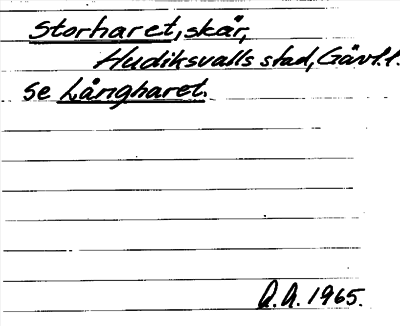 Storharet, skär,
Hudiksvalls stad, Gävl.l.
Se Långharet.
A.A. 1965.